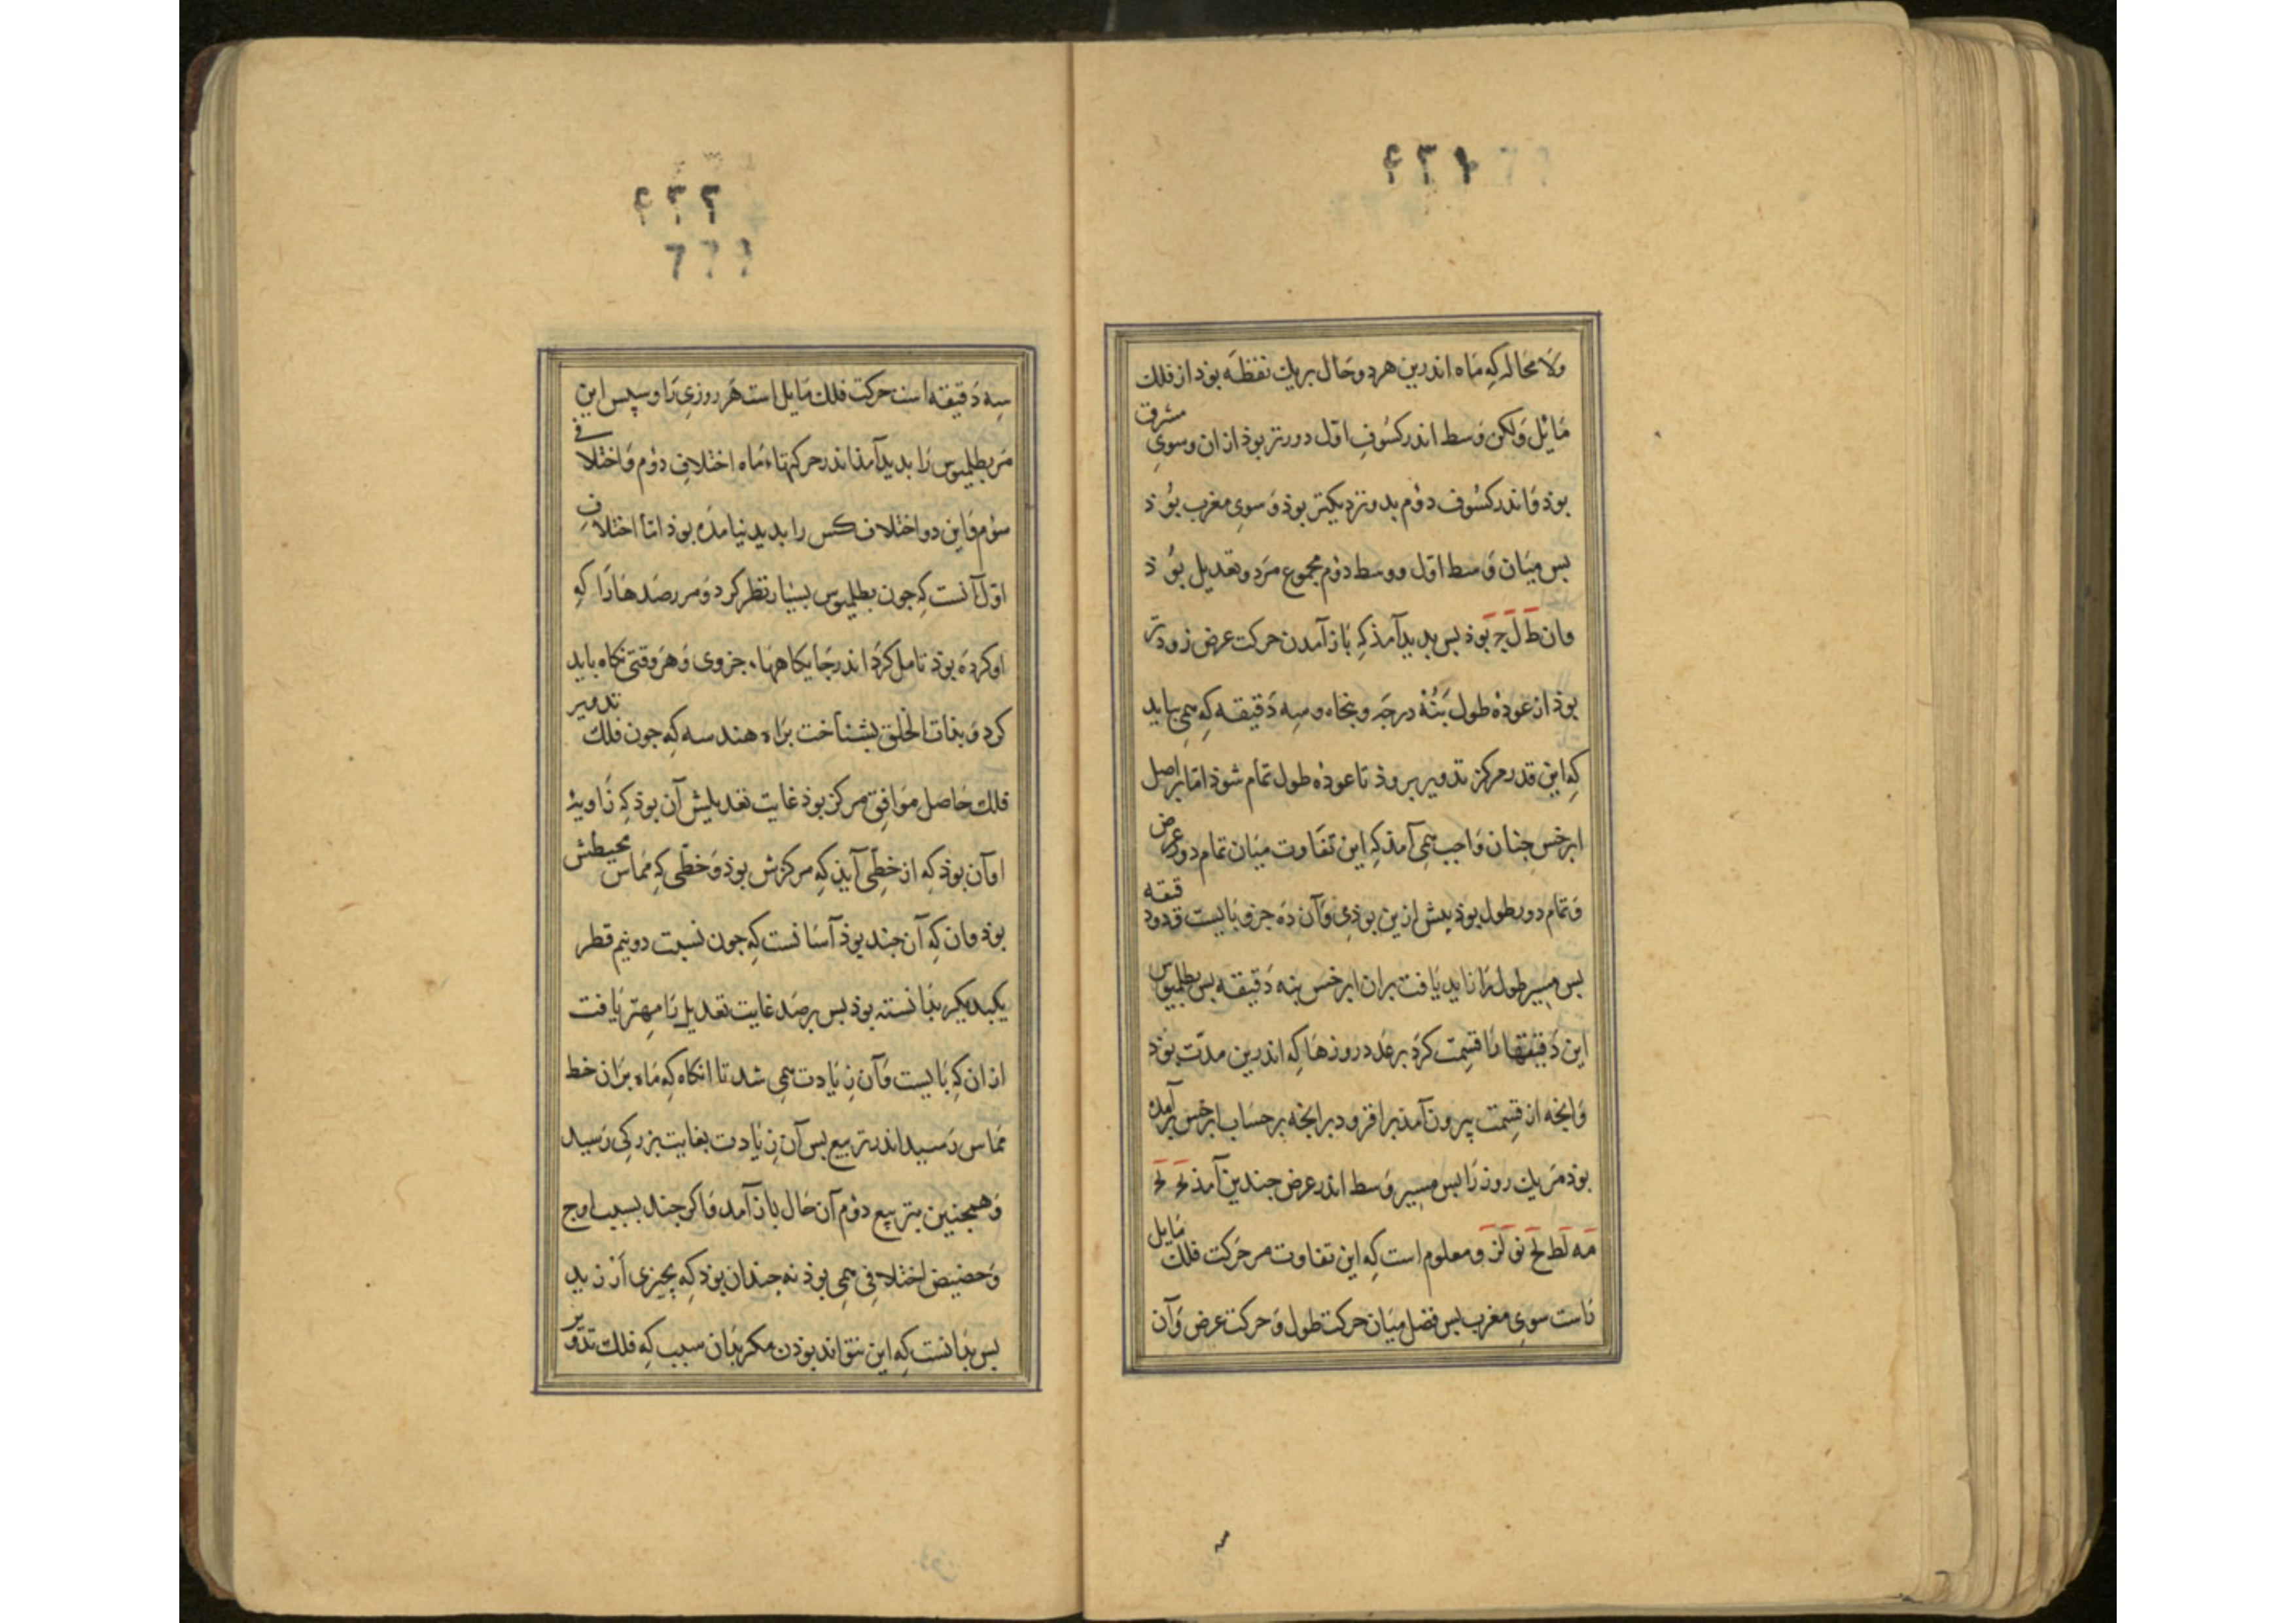 ۴۳۱
ولا محاله که ماه اندرین هر دو حال بر یک نقطه بود از فلک
مایل ولکن وسط اندر کسوف اول دورتر بوذ ازان وسوی مشرق
بوذ و اندر کسوف دوم بدو نزدیکتر بوذ و سوی مغرب بوذ
بس میان وسط اول و وسط دوم مجموع مر دو تعدیل بوذ
وان ط ل ج بوذ بس بدید آمذ که باز آمدن حرکت عرض زودتر
بوذ از عوذه طول بنه درجه و بنجاه و سه دقیقه که همی بباید
که این قدر مرکز تدویر بروذ تا عوذه طول تمام شوذ اما بر اصل
ابرخس جنان واجب همی آمذ که این تفاوت میان تمام دور عرض
و تمام دور طول بوذ بیش ازین بوذی و آن ده جزو با بیست و دو دقیقه
بس مسیر طول را تا بد یافت بران ابرخس بنه دقیقه بس بطلمیوس
این دقیقها را قسمت کرد بر عدد روزها که اندرین مدت بوذ
وانجه از قسمت بیرون آمذ برافزود برانجه بر حساب ابرخس برآمده
بوذ مر یک روز را بس مسیر وسط اندر عرض جندین آمذ
مه لط لح نو لز و معلوم است که این تفاوت مر حرکت فلک مایل
راست سوی مغرب بس فضل میان حرکت طول و حرکت عرض و آن
۴۳۲
سه دقیقه است حرکت فلک مایل است هر روزی را و سپس این
مر بطلمیوس را بدید آمذ اندر حرکتهاء ماه اختلاف دوم و اختلافی
سوم و این دو اختلاف کس را بدید نیامده بوذ اما اختلاف
اول آنست که جون بطلمیوس بسیار نظر کرد و مر رصدها را که
او کرده بوذ تامل کرد اندر جایگاهها جزوی و هر وقتی نگاه باید
کرد و بذات الحلق بشناخت براه هندسه که جون فلک تدویر
فلک حاصل موافق مرکز بوذ غایت تعدیلش آن بوذ که زاویۀ
او آن بوذ که از خطی آید که مرکزش بوذ و خطی که مماس محیطش
بوذ وان که آن جند بوذ آسانست که جون نسبت دو نیم قطر
یکبدیگر بدانسته بوذ بس برصد غایت تعدیل را مهتر یافت
ازان که بایست و آن زیادت همی شد تا انگاه که ماه بران خط
مماس رسید اندر تربیع بس آن زیادت بغایت بزرگی رسید
و همجنین بتربیع دوم آن حال باز آمد و اگر جند بسبب اوج
و حضیض اختلافی همی بوذ نه جندان بوذ که بچیزی ارزید
بس بدانست که این نتواند بوذن مگر بذان سبب که فلک تدویر